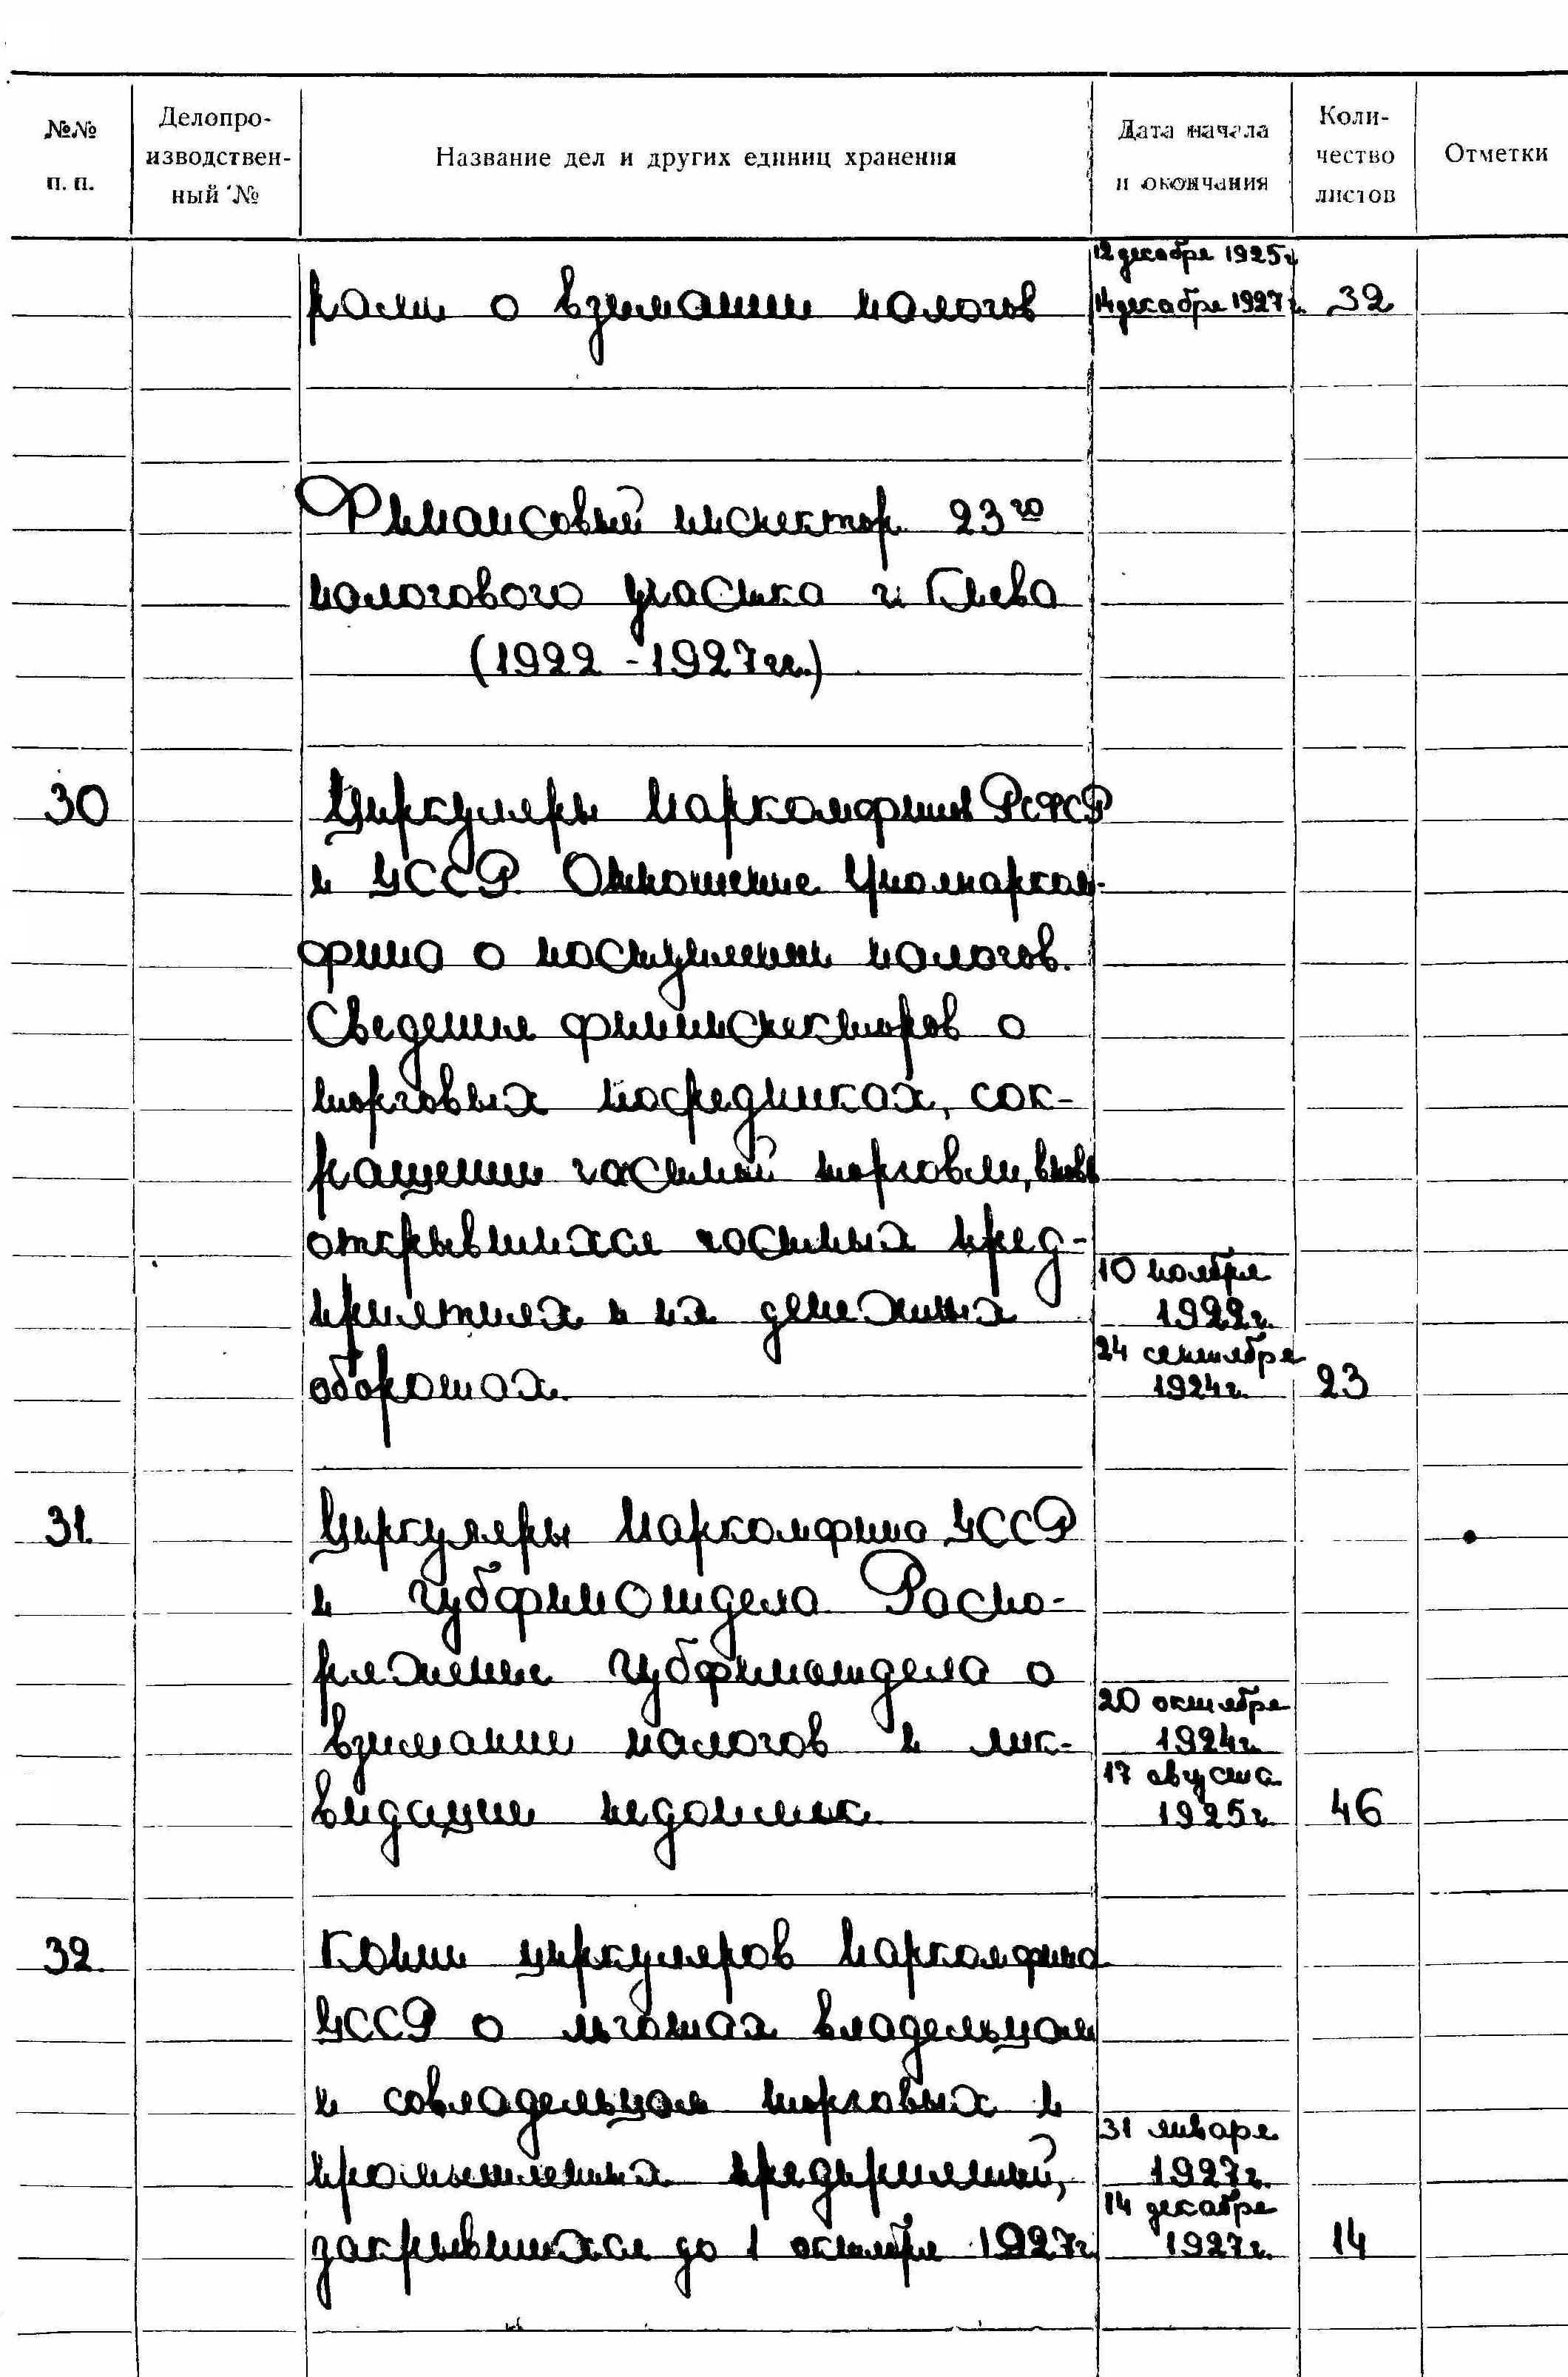 №№ п. п.
Делопро-
изводствен-
ный №
Название дел и других единиц хранения
Дата начала
и окончания
Коли-
чество
листов
Отметки
12 декабря 1925 г.
рами о взимании налогов 14 декабря 1927 г. 32
Финансовый инспектор 23го
налогового участка г. Киева
(1922 - 1927 гг.)
30 Циркуляры Наркомфинов РСФСР
и УССР. Отношение Уполнарком-
фина о поступлении налогов.
Сведения фининспекторов о
торговых посредниках, сок-
ращении частной торговли, вновь
открывшихся частных пред-
приятиях и их денежных
оборотах.
10 ноября
1922 г.
24 сентября
1924 г. 23
31. Циркуляры Наркомфина УССР
и Губфинотдела. Распо-
ряжение Губфинотдела о
взимании налогов и лик-
видации недоимок.
20 октября
1924 г.
17 августа
1925 г. 46
32. Копии циркуляров Наркомфина
УССР о льготах владельцам
и совладельцам торговых и
промышленных предприятий,
закрывшихся до 1 октября 1927 г.
31 января
1927 г.
14 декабря
1927 г. 14